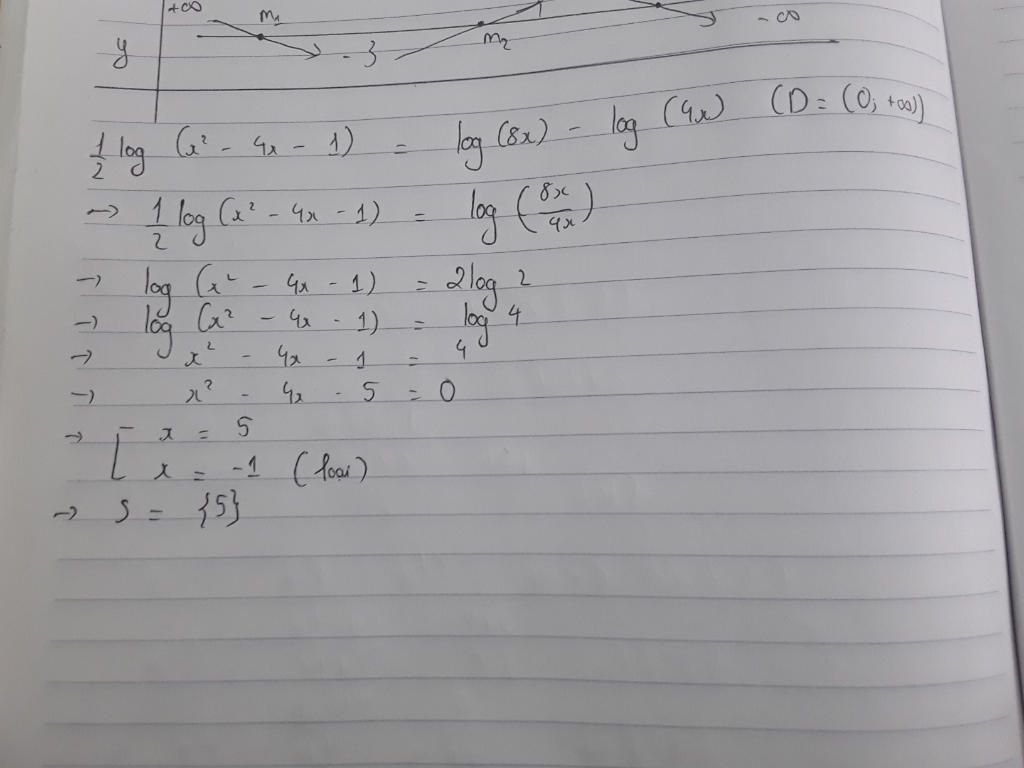 +∞ m₁ m₂ - ∞
y - 3
½ log (x² - 4x - 1) = log (8x) - log (4x) (D = (0; +∞))
→ ½ log (x² - 4x - 1) = log (8x/4x)
→ log (x² - 4x - 1) = 2log 2
→ log (x² - 4x - 1) = log 4
→ x² - 4x - 1 = 4
→ x² - 4x - 5 = 0
→ [ x = 5
x = -1 (loại)
→ S = {5}